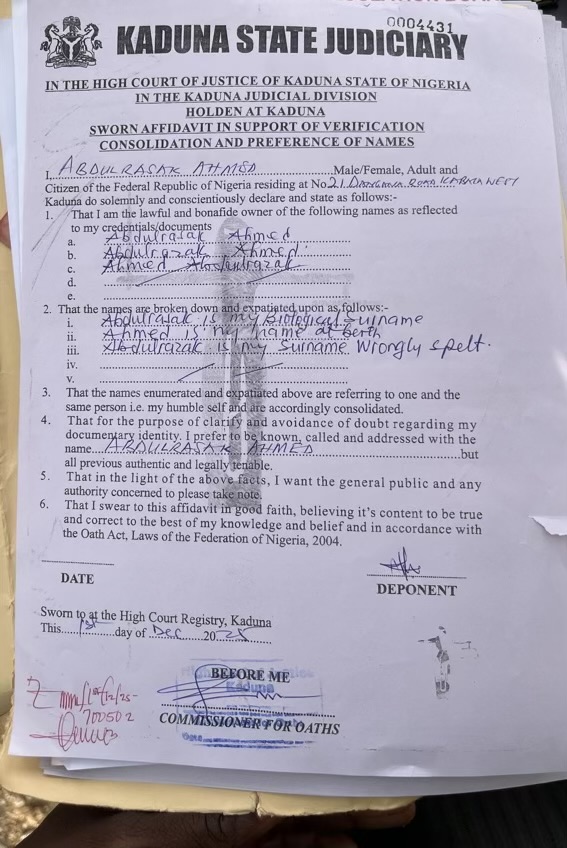 0004431
KADUNA STATE JUDICIARY
IN THE HIGH COURT OF JUSTICE OF KADUNA STATE OF NIGERIA
IN THE KADUNA JUDICIAL DIVISION
HOLDEN AT KADUNA
SWORN AFFIDAVIT IN SUPPORT OF VERIFICATION
CONSOLIDATION AND PREFERENCE OF NAMES
I, ABDULRASAK AHMED Male/Female, Adult and
Citizen of the Federal Republic of Nigeria residing at No 21 ROAD KABALA WEST
Kaduna do solemnly and conscientiously declare and state as follows:-
1. That I am the lawful and bonafide owner of the following names as reflected
to my credentials/documents
a. Abdulrasak Ahmed
b. Abdulrazak Ahmed
c. Ahmed Abdulrazak
d.
e.
2. That the names are broken down and expatiated upon as follows:-
i. Abdulrasak is my Biological Surname
ii. Ahmed is my name at berth
iii. Abdulrazak is my Surname Wrongly spelt.
iv.
v.
3. That the names enumerated and expatiated above are referring to one and the
same person i.e. my humble self and are accordingly consolidated.
4. That for the purpose of clarify and avoidance of doubt regarding my
documentary identity. I prefer to be known, called and addressed with the
name ABDULRASAK AHMED but
all previous authentic and legally tenable.
5. That in the light of the above facts, I want the general public and any
authority concerned to please take note.
6. That I swear to this affidavit in good faith, believing it's content to be true
and correct to the best of my knowledge and belief and in accordance with
the Oath Act, Laws of the Federation of Nigeria, 2004.
DATE
DEPONENT
Sworn to at the High Court Registry, Kaduna
This 1st day of Dec 2025
BEFORE ME
Kaduna
COMMISSIONER FOR OATHS